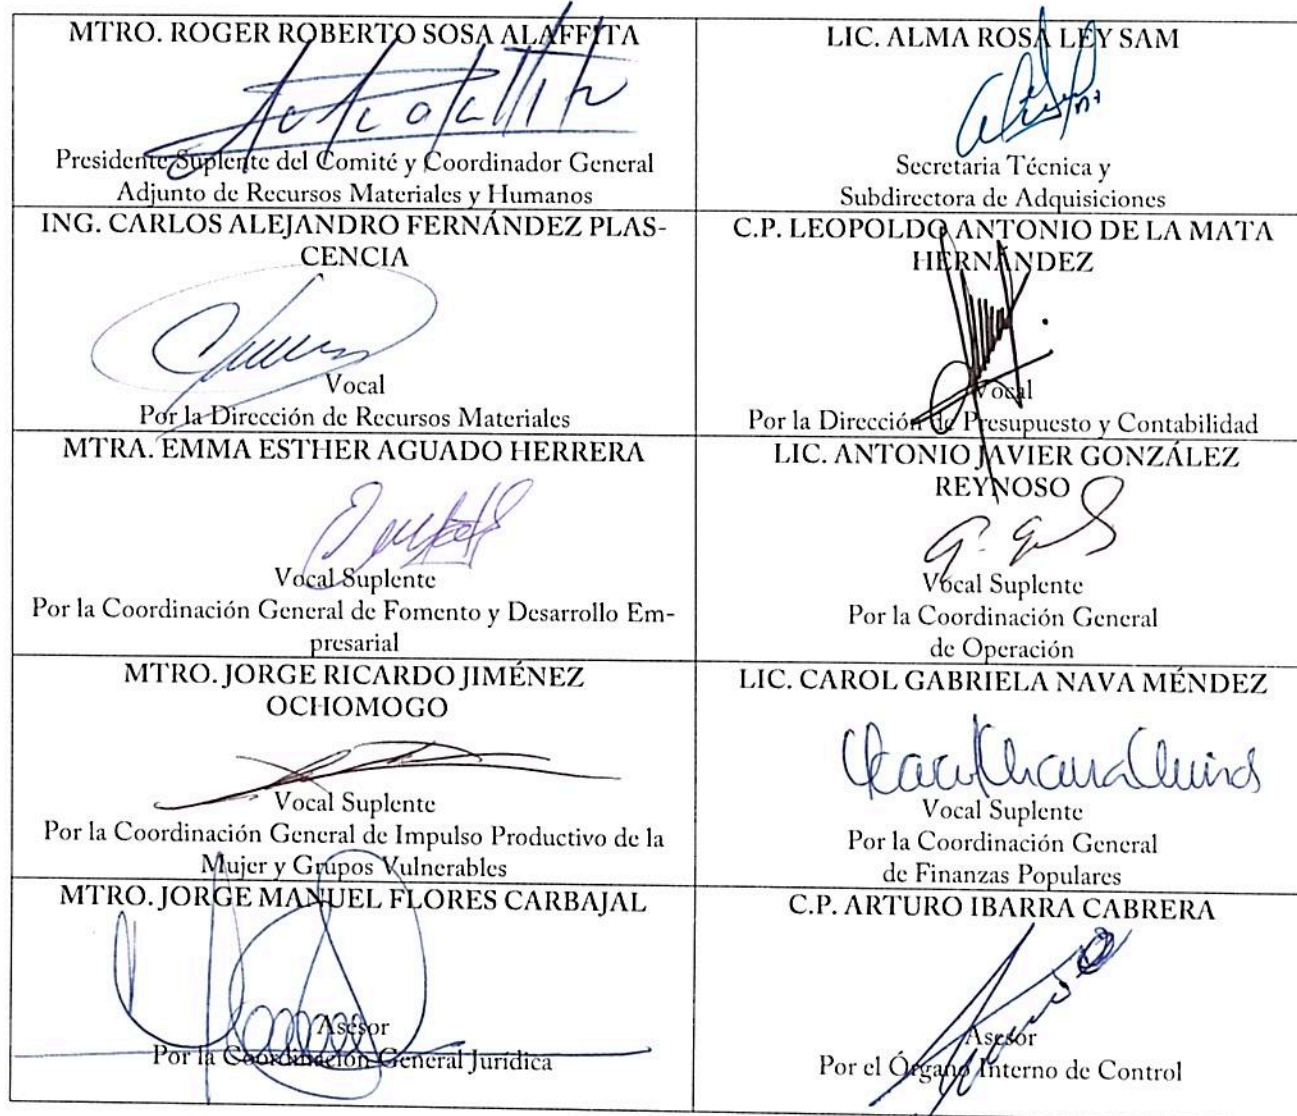 MTRO. ROGER ROBERTO SOSA ALAFFITA
Presidente Suplente del Comité y Coordinador General
Adjunto de Recursos Materiales y Humanos
LIC. ALMA ROSA LEY SAM
Secretaria Técnica y
Subdirectora de Adquisiciones
ING. CARLOS ALEJANDRO FERNÁNDEZ PLAS-
CENCIA
Vocal
Por la Dirección de Recursos Materiales
C.P. LEOPOLDO ANTONIO DE LA MATA
HERNÁNDEZ
Vocal
Por la Dirección de Presupuesto y Contabilidad
MTRA. EMMA ESTHER AGUADO HERRERA
Vocal Suplente
Por la Coordinación General de Fomento y Desarrollo Em-
presarial
LIC. ANTONIO JAVIER GONZÁLEZ
REYNOSO
Vocal Suplente
Por la Coordinación General
de Operación
MTRO. JORGE RICARDO JIMÉNEZ
OCHOMOGO
Vocal Suplente
Por la Coordinación General de Impulso Productivo de la
Mujer y Grupos Vulnerables
LIC. CAROL GABRIELA NAVA MÉNDEZ
Vocal Suplente
Por la Coordinación General
de Finanzas Populares
MTRO. JORGE MANUEL FLORES CARBAJAL
Asesor
Por la Coordinación General Jurídica
C.P. ARTURO IBARRA CABRERA
Asesor
Por el Órgano Interno de Control